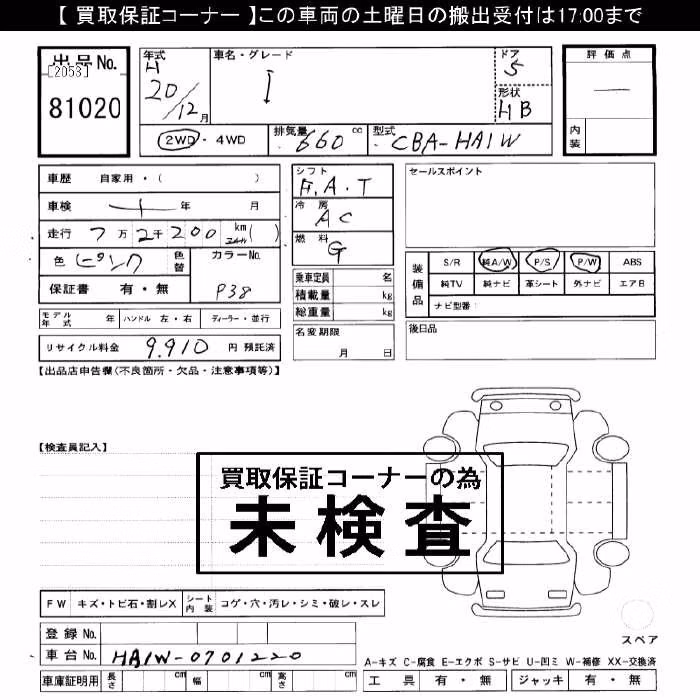 【 買取保証コーナー 】この車両の土曜日の搬出受付は17:00まで
出品No.
[2053]
81020
年式
H
20/12月
車名・グレード
I
ドア
5
形状
HB
2WD・4WD
排気量 660 cc
型式 CBA-HA1W
評価点
—
内装
車歴 自家用・( )
車検 年 月
走行 7万2千200 km ( )
色 ピンク 色替
カラーNo.
P38
保証書 有・無
シフト
F.A.T
冷房
AC
燃料
G
乗車定員 名
積載量 kg
総重量 kg
名変期限
月 日
セールスポイント
装備品
S/R 純A/W P/S P/W ABS
純TV 純ナビ 革シート 外ナビ エアB
ナビ型番:
後日品
モデル年式 年 ハンドル 左・右 ディーラー・並行
リサイクル料金 9.910 円 預託済
【出品店申告欄(不良箇所・欠品・注意事項等)】
【検査員記入】
買取保証コーナーの為
未検査
FW キズ・トビ石・割レX シート内装 コゲ・穴・汚レ・シミ・破レ・スレ
登録 No.
車台 No. HA1W-0701220
車庫証明用 長さ cm 幅 cm 高さ cm
スペア
A-キズ C-腐食 E-エクボ S-サビ U-凹ミ W-補修 XX-交換済
工具 有・無 ジャッキ 有・無